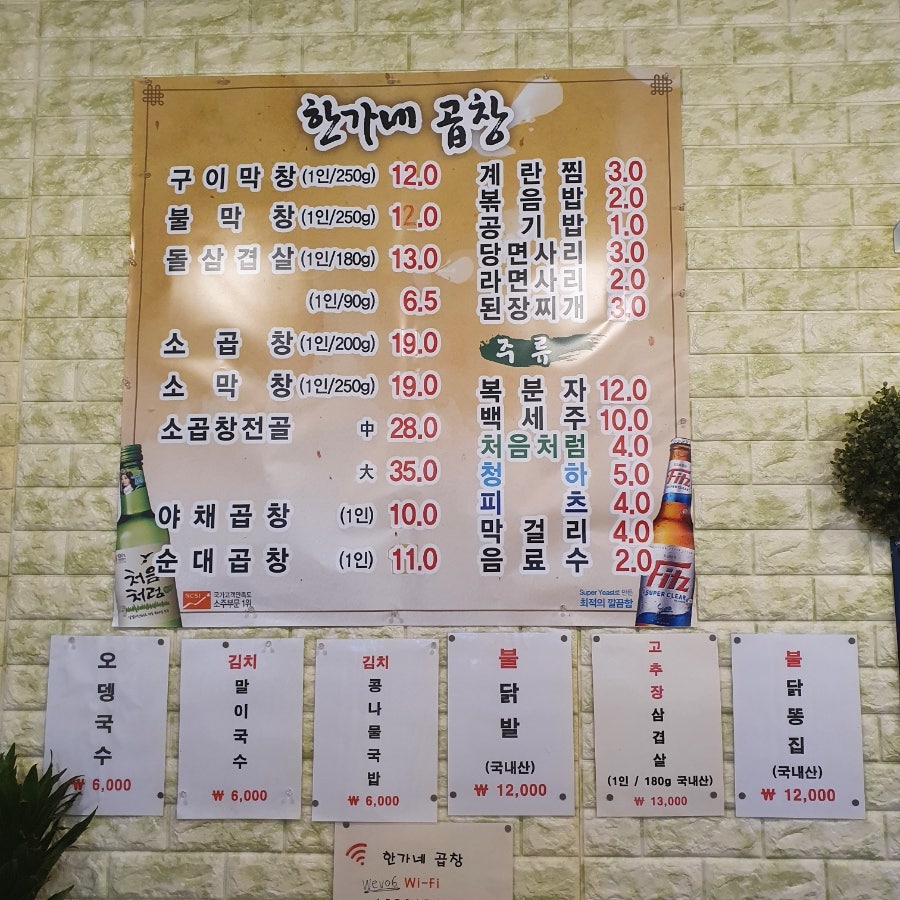 한가네 곱창
구이막창(1인/250g) 12.0
불막창(1인/250g) 12.0
돌삼겹살(1인/180g) 13.0
(1인/90g) 6.5
소곱창(1인/200g) 19.0
소막창(1인/250g) 19.0
소곱창전골 中 28.0
大 35.0
야채곱창 (1인) 10.0
순대곱창 (1인) 11.0
계란찜 3.0
볶음밥 2.0
공기밥 1.0
당면사리 3.0
라면사리 2.0
된장찌개 3.0
주류
복분자 12.0
백세주 10.0
처음처럼 4.0
청하 5.0
피츠 4.0
막걸리 4.0
음료수 2.0
처음
처럼
NCSI 국가고객만족도
소주부문 1위
Super Yeast로 만든
최적의 깔끔함
Fitz
Fitz
SUPER CLEAR
오뎅국수
₩ 6,000
김치
말이국수
₩ 6,000
김치
콩나물국밥
₩ 6,000
불닭발
(국내산)
₩ 12,000
고추장삼겹살
(1인 / 180g 국내산)
₩ 13,000
불닭똥집
(국내산)
₩ 12,000
한가네 곱창
Wi-Fi